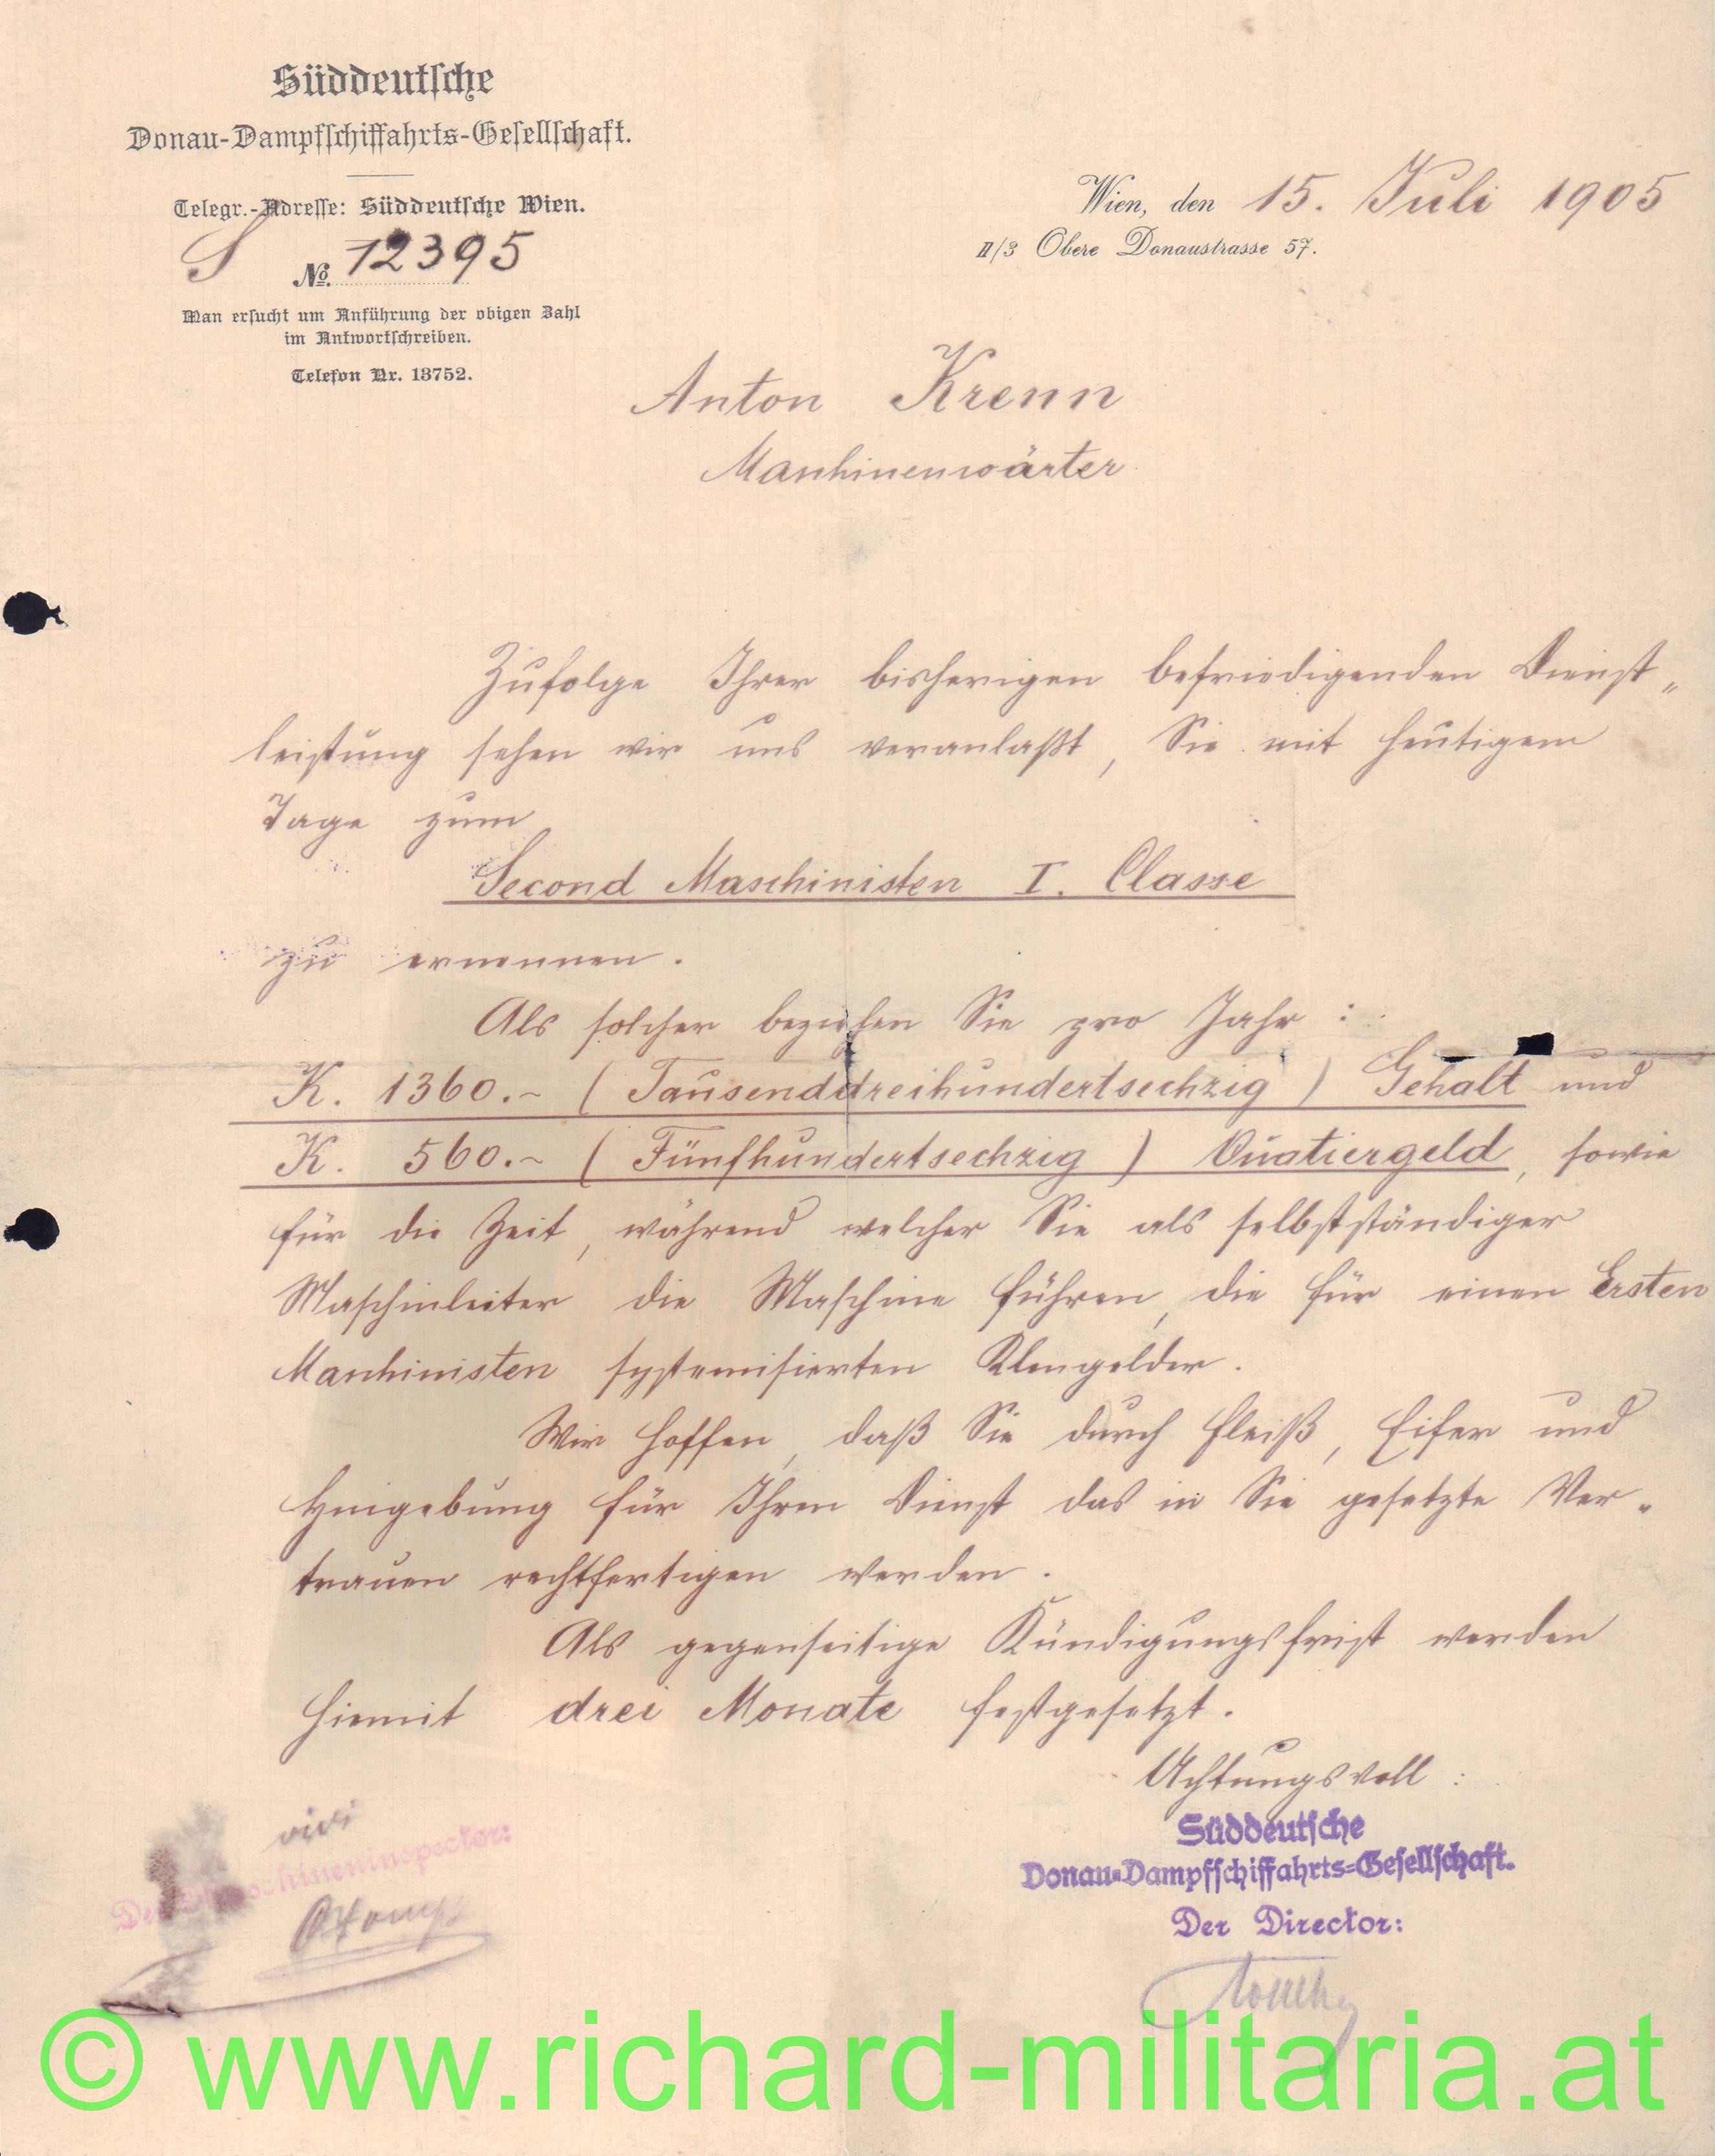 Süddeutsche
Donau-Dampfschiffahrts-Gesellschaft.
Telegr.-Adresse: Süddeutsche Wien.
S № 12395
Man ersucht um Anführung der obigen Zahl
im Antwortschreiben.
Telefon Nr. 13752.
Wien, den 15. Juli 1905
II/3 Obere Donaustrasse 57.
Anton Krenn
Maschinenwärter
Zufolge Ihrer bisherigen befriedigenden Dienst„
leistung sehen wir uns veranlaßt, Sie mit heutigem
Tage zum
Second Maschinisten I. Classe
zu ernennen.
Als solcher beziehen Sie pro Jahr:
K. 1360.~ (Tausenddreihundertsechzig) Gehalt und
K. 560.~ (Fünfhundertsechzig) Quatiergeld, sowie
für die Zeit, während welcher Sie als selbstständiger
Maschinleiter die Maschine führen, die für einen Ersten
Maschinisten systemisierten
Wir hoffen, daß Sie durch Fleiß, Eifer und
Hingebung für Ihren Dienst das in Sie gesetzte Ver„
trauen rechtfertigen werden.
Als gegenseitige Kündigungsfrist werden
hiemit drei Monate festgesetzt.
Achtungsvoll:
Süddeutsche
Donau-Dampfschiffahrts-Gesellschaft.
Der Director:
vidi
Der Maschineninspector:
© www.richard-militaria.at